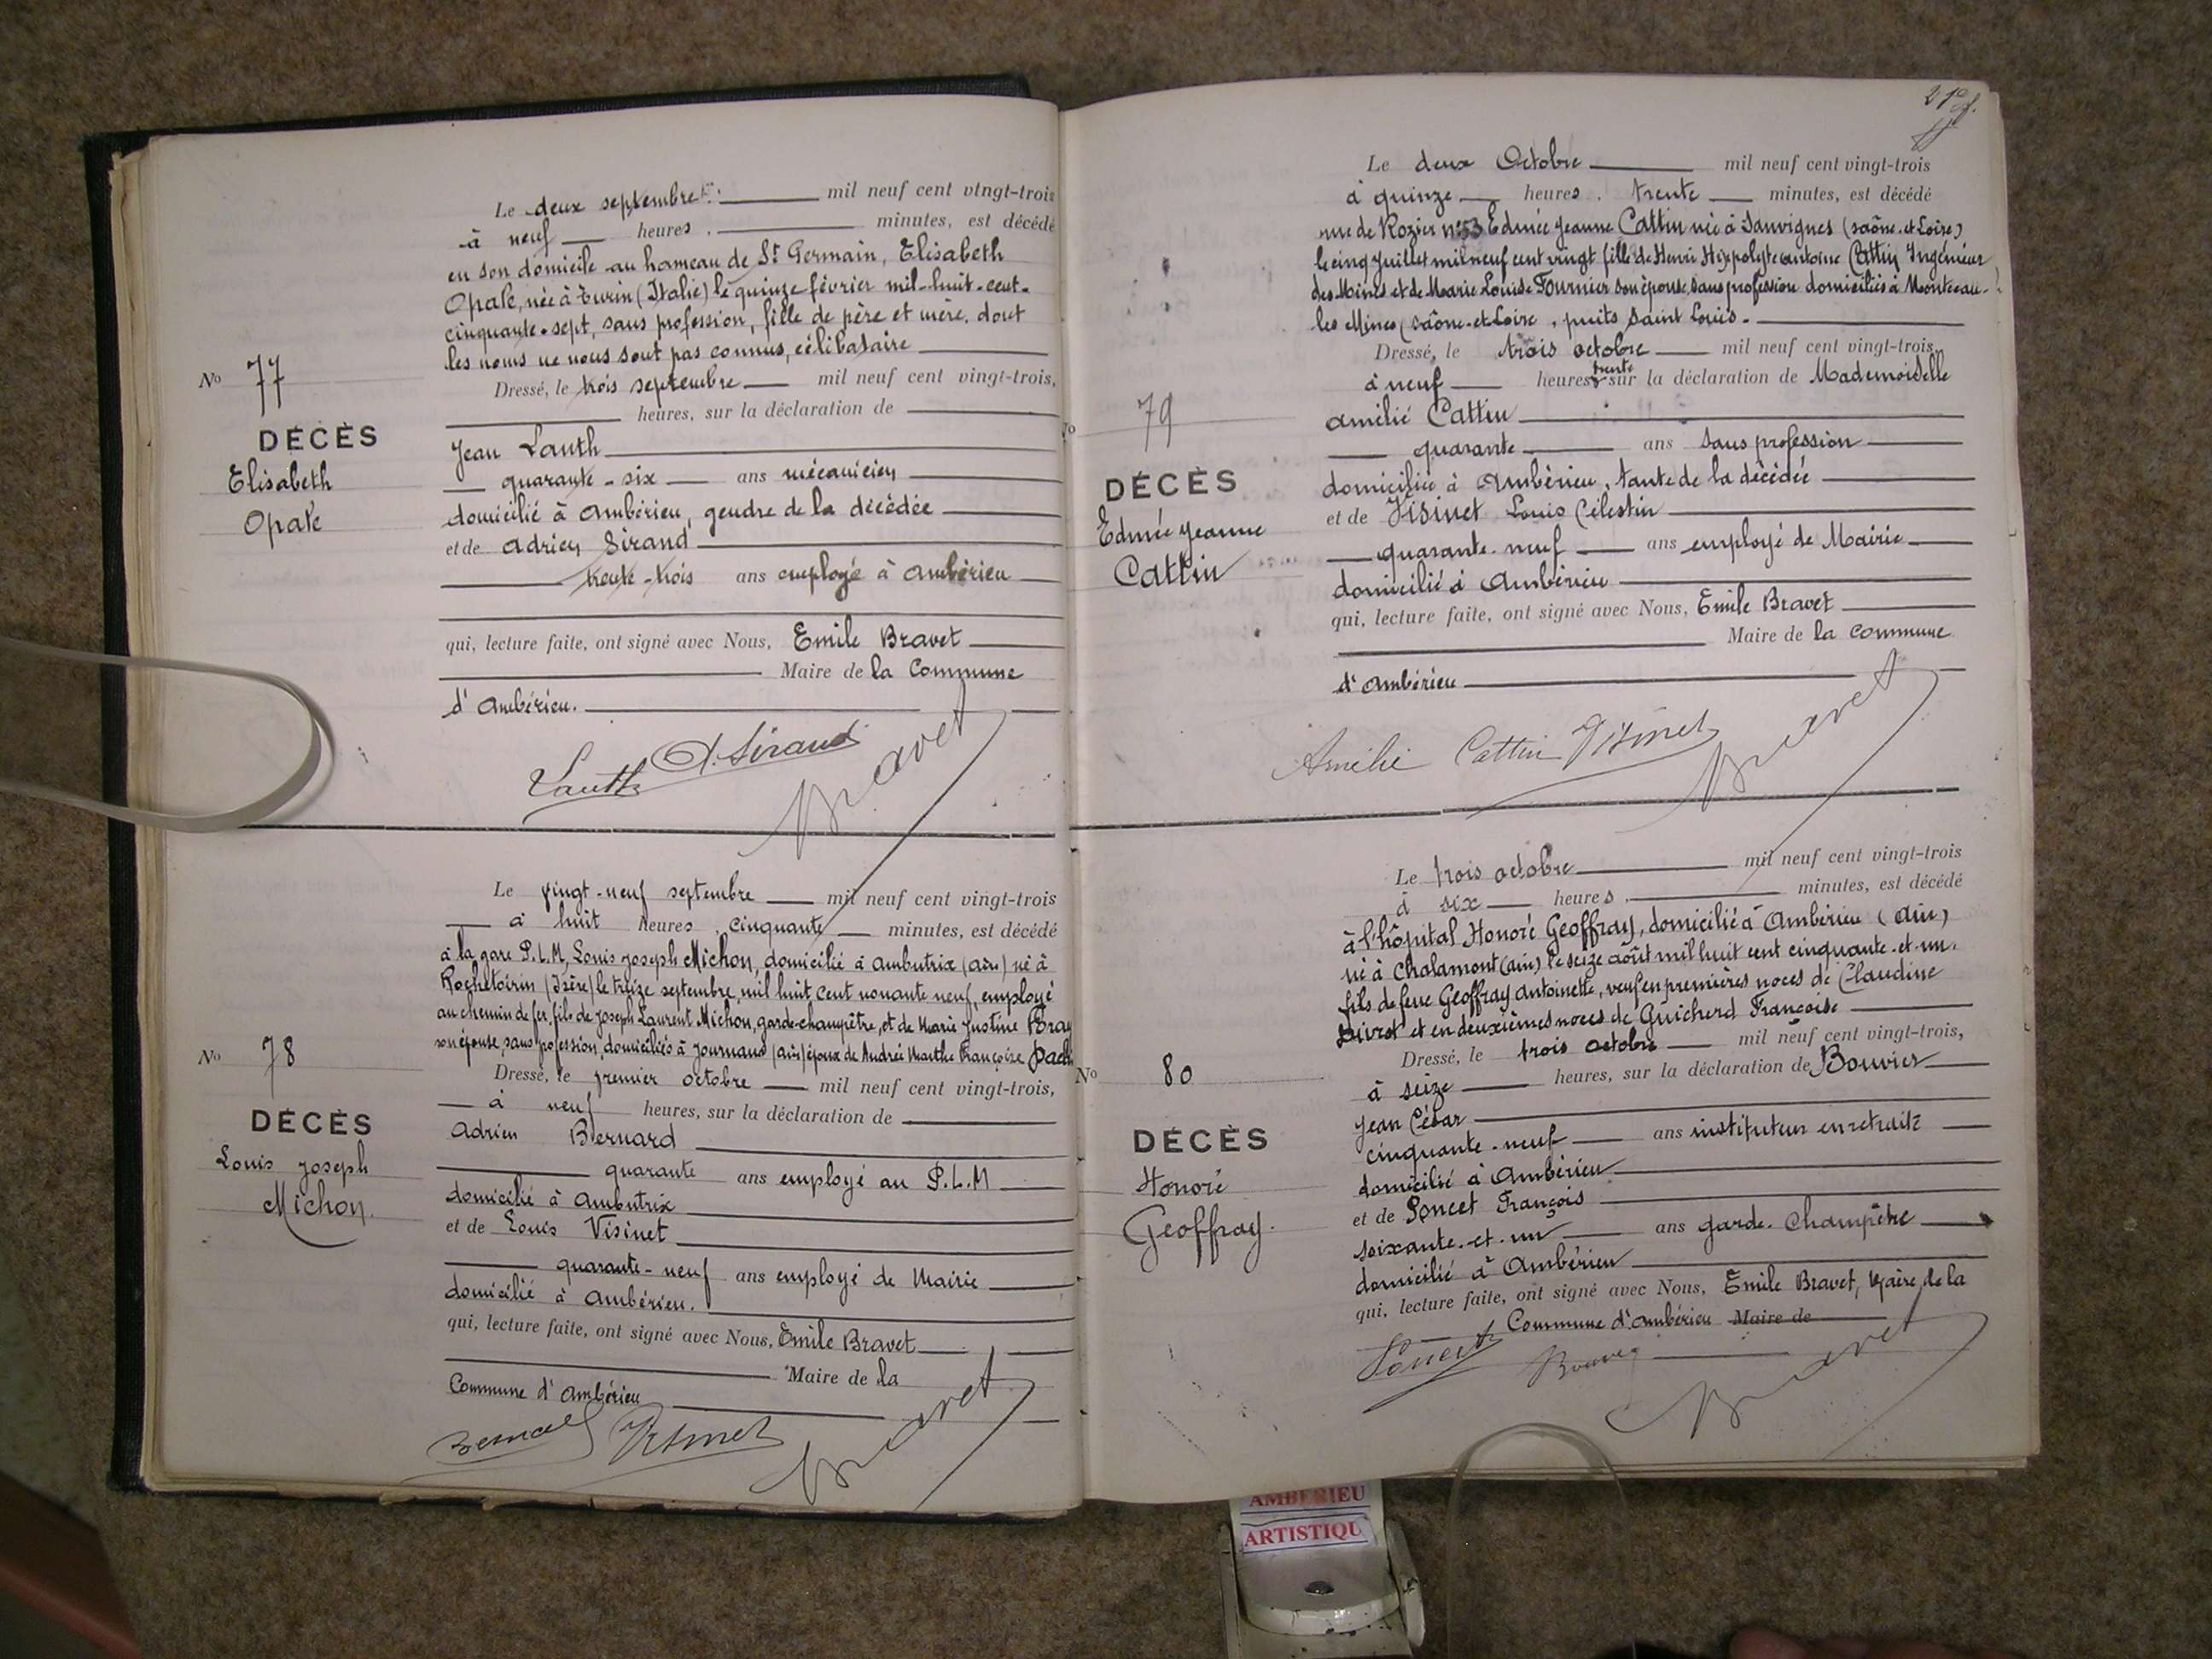 Le deux septembre mil neuf cent vingt-trois
à neuf heures, minutes, est décédé
en son domicile au hameau de St Germain, Elisabeth
Opale, née à Turin (Italie) le quinze février mil-huit-cent-
cinquante-sept, sans profession, fille de père et mère dont
les noms ne nous sont pas connus, célibataire
No 77
Dressé, le trois septembre mil neuf cent vingt-trois,
heures, sur la déclaration de
DÉCÈS
Elisabeth
Opale
Jean Lauth
quarante-six ans mécanicien
domicilié à Ambérieu, gendre de la décédée
et de Adrien Sirand
trente-trois ans employé à Ambérieu
qui, lecture faite, ont signé avec Nous, Emile Bravet
Maire de la Commune
d'Ambérieu.
Lauth A. Sirand Bravet
Le vingt-neuf septembre mil neuf cent vingt-trois
à huit heures, cinquante minutes, est décédé
à la gare P.L.M, Louis Joseph Michon, domicilié à Ambutrix (ain) né à
Rochetoirin (Isère) le treize septembre, mil huit cent nonante neuf, employé
au chemin de fer, fils de Joseph Laurent Michon, garde-champêtre, et de Marie Justine
son épouse, sans profession, domiciliés à Journans (ain) époux de Andrée Marthe Françoise
No 78
Dressé, le premier octobre mil neuf cent vingt-trois,
à neuf heures, sur la déclaration de
DÉCÈS
Louis Joseph
Michon.
Adrien Bernard
quarante ans employé au P.L.M
domicilié à Ambutrix
et de Louis Visinet
quarante-neuf ans employé de Mairie
domicilié à Ambérieu.
qui, lecture faite, ont signé avec Nous, Emile Bravet
Maire de la
Commune d'Ambérieu
Bernard Visinet Bravet
Le deux Octobre mil neuf cent vingt-trois
à quinze heures, trente minutes, est décédé
rue de Rozier n°53 Edmée Jeanne Cattin née à Sanvignes (saône-et-Loire)
le cinq Juillet mil neuf cent vingt fille de Henri Hippolyte Antoine Cattin Ingénieur
des Mines et de Marie Louise Fournier son épouse, sans profession domiciliés à Montceau-
les Mines (saône-et-Loire, puits Saint Louis.
No 79
Dressé, le trois octobre mil neuf cent vingt-trois,
à neuf heures trente sur la déclaration de Mademoiselle
DÉCÈS
Edmée Jeanne
Cattin
Amélie Cattin
quarante ans sans profession
domiciliée à Ambérieu, tante de la décédée
et de Visinet Louis Célestin
quarante-neuf ans employé de Mairie
domicilié à Ambérieu
qui, lecture faite, ont signé avec Nous, Emile Bravet
Maire de la Commune
d'Ambérieu
Amélie Cattin Visinet Bravet
Le trois octobre mil neuf cent vingt-trois
à six heures, minutes, est décédé
à l'hôpital Honoré Geoffray, domicilié à Ambérieu (ain)
né à Chalamont (ain) le seize août mil huit cent cinquante-et-un,
fils de feue Geoffray Antoinette, veuf en premières noces de Claudine
et en deuxièmes noces de Guicherd Françoise
No 80
Dressé, le trois octobre mil neuf cent vingt-trois,
à seize heures, sur la déclaration de Bouvier
DÉCÈS
Honoré
Geoffray.
Jean César
cinquante-neuf ans instituteur en retraite
domicilié à Ambérieu
et de Poncet François
soixante-et-un ans garde-Champêtre
domicilié à Ambérieu
qui, lecture faite, ont signé avec Nous, Emile Bravet, Maire de la
Commune d'Ambérieu Maire de
Poncet Bouvier Bravet
AMBERIEU
ARTISTIQU